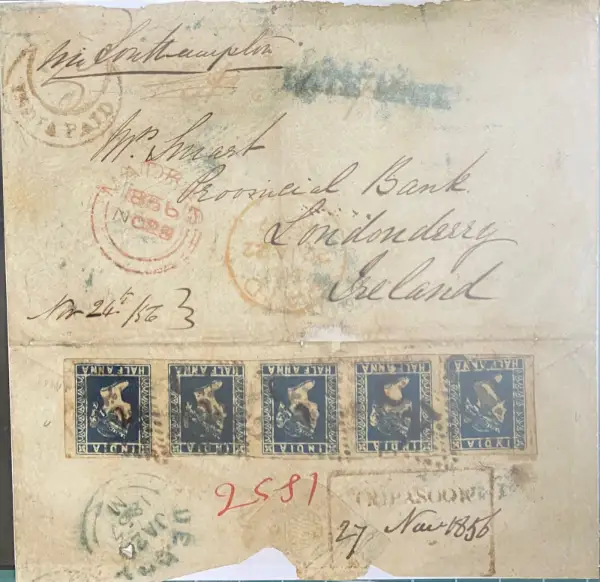 via Southampton
INDIA PAID
Mrs Smart
Provincial Bank
Londonderry
Ireland
MADRAS
1856
NO 28
Nov 24th /56
HALF ANNA
INDIA
HALF ANNA
INDIA
HALF ANNA
INDIA
HALF ANNA
INDIA
HALF ANNA
INDIA
1856
TRIPASOOR
27 Nov 1856
DERRY
JA